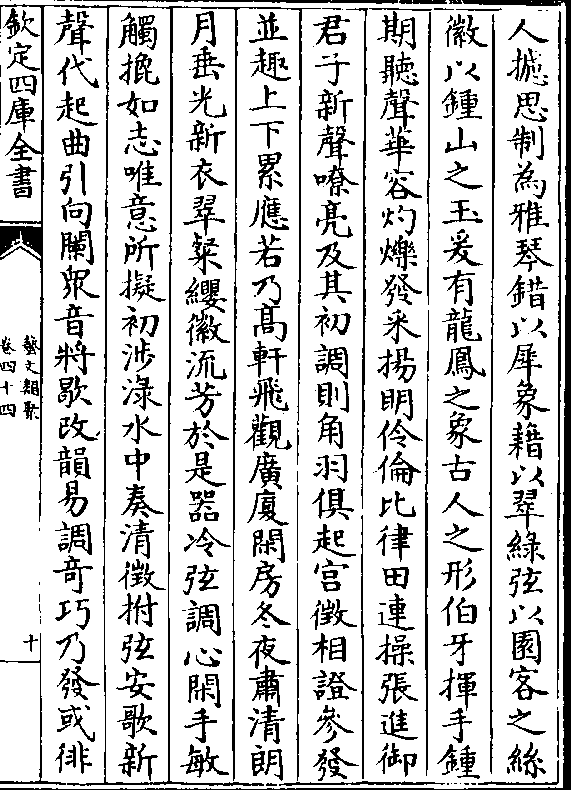 人攄思制為雅琴錯以犀象藉以翠綠弦以園客之絲
徽以鍾山之玉爰有龍鳳之象古人之形伯牙揮手鍾
期聽聲華容灼爍發采揚明伶倫比律田連操張進御
君子新聲嘹亮及其初調則角羽俱起宫徴相證參發
並趣上下累應若乃髙軒飛觀廣廈閑房冬夜肅清朗
月垂光新衣翠粲纓徽流芳於是器冷弦調心閑手敏
觸㧓如志唯意所擬初涉渌水中奏清徴拊弦安歌新
聲代起曲引向闌衆音將歇改韻易調奇巧乃發或徘
欽定四庫全書
藝文類聚
卷四十四
十